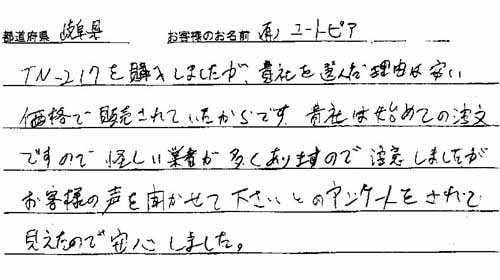 都道府県 岐阜県 お客様のお名前 (有)ユートピア
TN-217を購入しましたが、貴社を選んだ理由は安い
価格で販売されていたからです。貴社は始めての注文
ですので怪しい業者が多くありますので注意しましたが
お客様の声を聞かせて下さいとのアンケートをされて
見えたので安心しました。